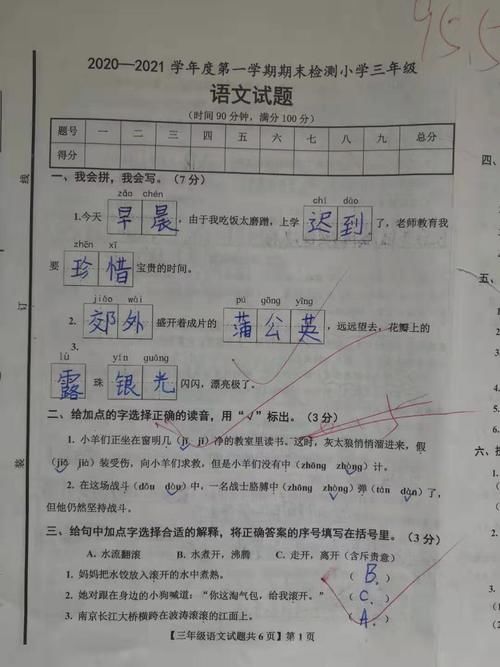 95.5
2020—2021 学年度第一学期期末检测小学三年级
语文试题
(时间 90 分钟，满分 100 分)
题号 一 二 三 四 五 六 七 八 九 总分
得分
一、我会拼，我会写。(7 分)
zǎo chén chí dào
1.今天 早晨 ，由于我吃饭太磨蹭，上学 迟到 了，老师教育我
zhēn xī
要 珍惜 宝贵的时间。
jiāo wài pú gōng yīng
2. 郊外 盛开着成片的 蒲公英 ，远远望去，花瓣上的
3.
lù yín guāng
露 珠 银光 闪闪，漂亮极了。
二、给加点的字选择正确的读音，用“√”标出。(3 分)
1. 小羊们正坐在窗明几（jī jǐ）净的教室里读书。这时，灰太狼悄悄溜进来，假
（jiǎ jià）装受伤，向小羊们求救，但是小羊们没有中（zhōng zhòng）计。
2. 在这场战斗（dǒu dòu）中，一名战士胳膊中（zhōng zhòng）弹（tán dàn）了，
但他仍然坚持战斗。
三、给句中加点字选择合适的解释，将正确答案的序号填写在括号里。(3 分)
A. 水流翻滚 B. 水煮开，沸腾 C. 走开，离开（含斥责意）
1. 妈妈把水饺放入滚开的水中煮熟。 （ B. ）
2. 她对跟在身边的小狗喊道：“你这淘气包，给我滚开。” （ C. ）
3. 南京长江大桥横跨在波涛滚滚的江面上。 （ A. ）
【三年级语文试题共 6 页】第 1 页
线
订
装
四、
五、
六、